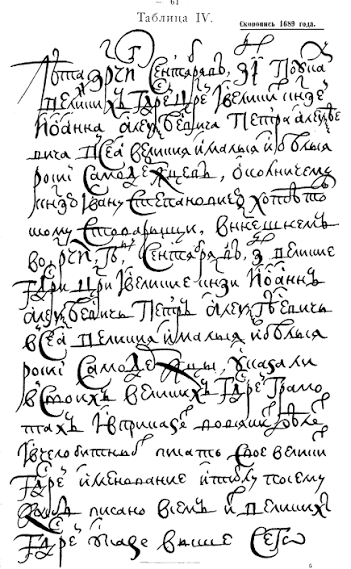 — 61 —
Таблица IV.
Скоропись 1689 года.
Лѣта ҂зрчи Сентября въ, зі По указу
великихъ Гдрей Црей и великих кнзей
Иоанна Алеѯѣевича Петра Алеѯѣе
вича всеа великия и малыя и бѣлыя
росиі Самодержцевъ, околничему
кнзю Ивану Степановичю
Стоварыщи, внынешнемъ
во рчи, Сентября въ, великие
Гдри Цри и великие кнзи Иоаннъ
Алеѯѣевичь Петръ Алеѯѣевичь
всеа великия и малыя и бѣлыя
росиі Самодержцы, указали
всвоихъ великихъ Гдрей грамо
тахъ и вприказе
и вчелобитных писать свое великих
Гдрей именование и титлу посему
писано всемъ великих
Гдрей указе выше Сего
6